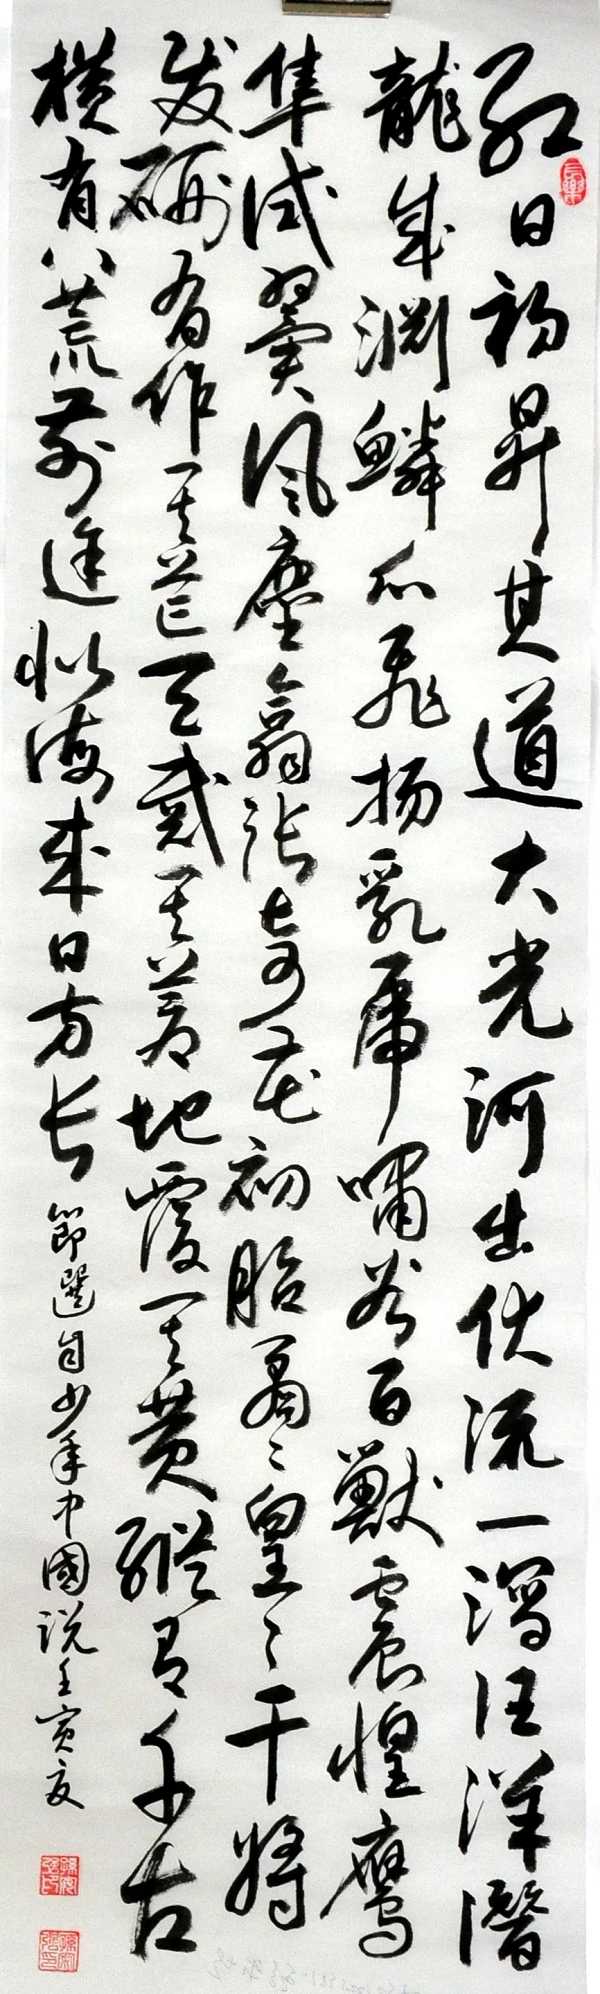 红日初昇其道大光河出伏流一泻汪洋潛
龍騰渊鳞爪飛扬乳虎嘯谷百獸震惶鹰
隼试翼风塵翕张奇花初胎矞々皇々干将
发硎有作其芒天戴其苍地覆其黄縱有千古
横有八荒前途似海来日方长
節選自少年中國说壬寅夏